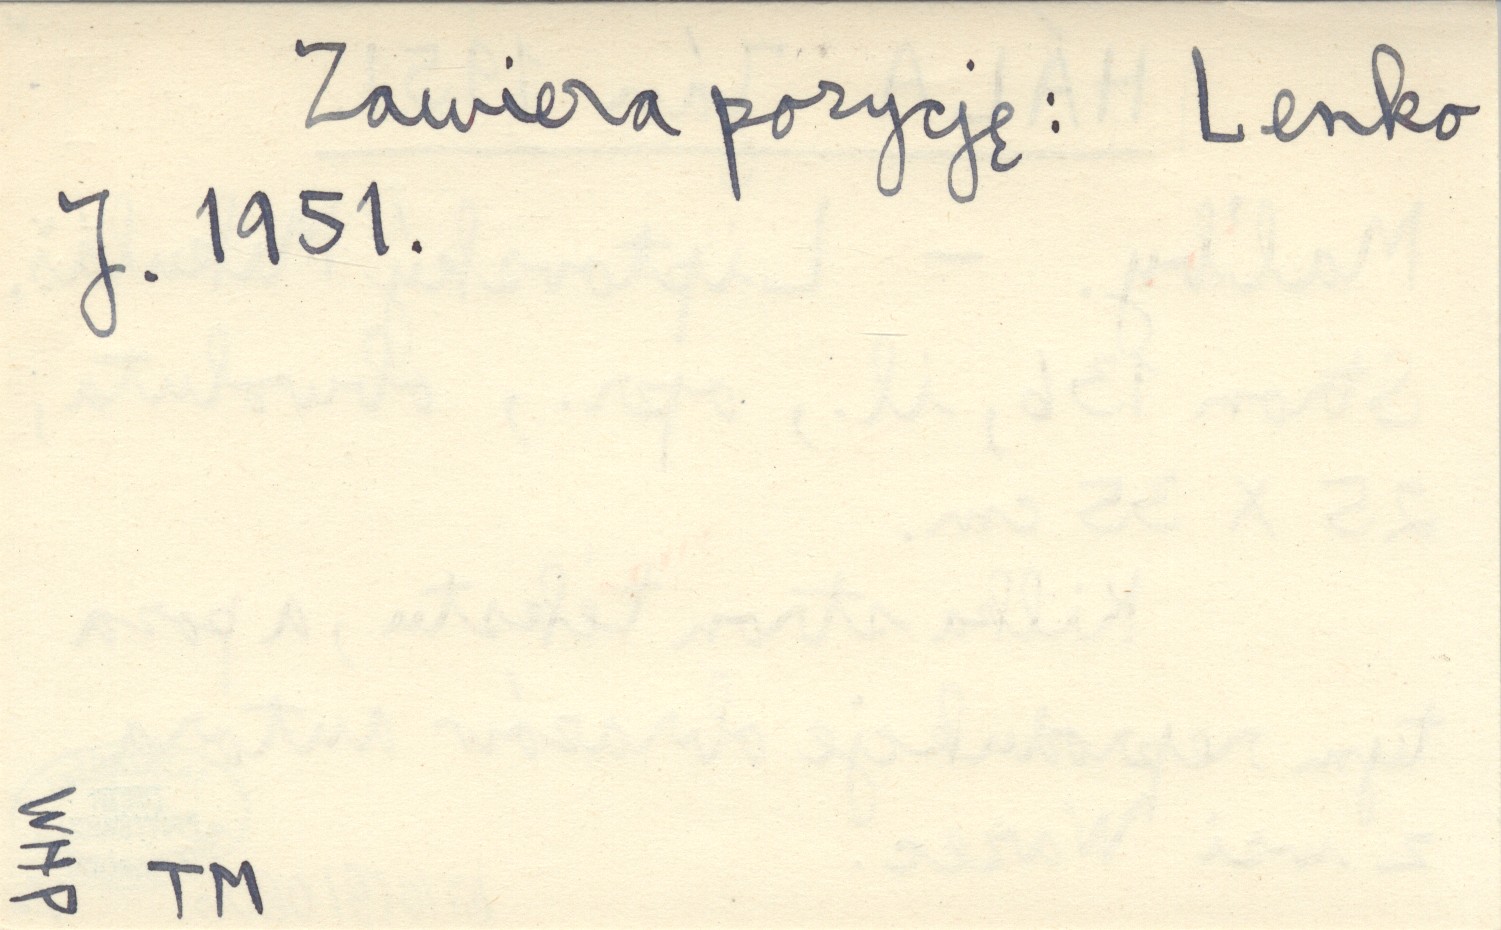 Zawiera pozycję: Lenko
J. 1951.
WHP
TM